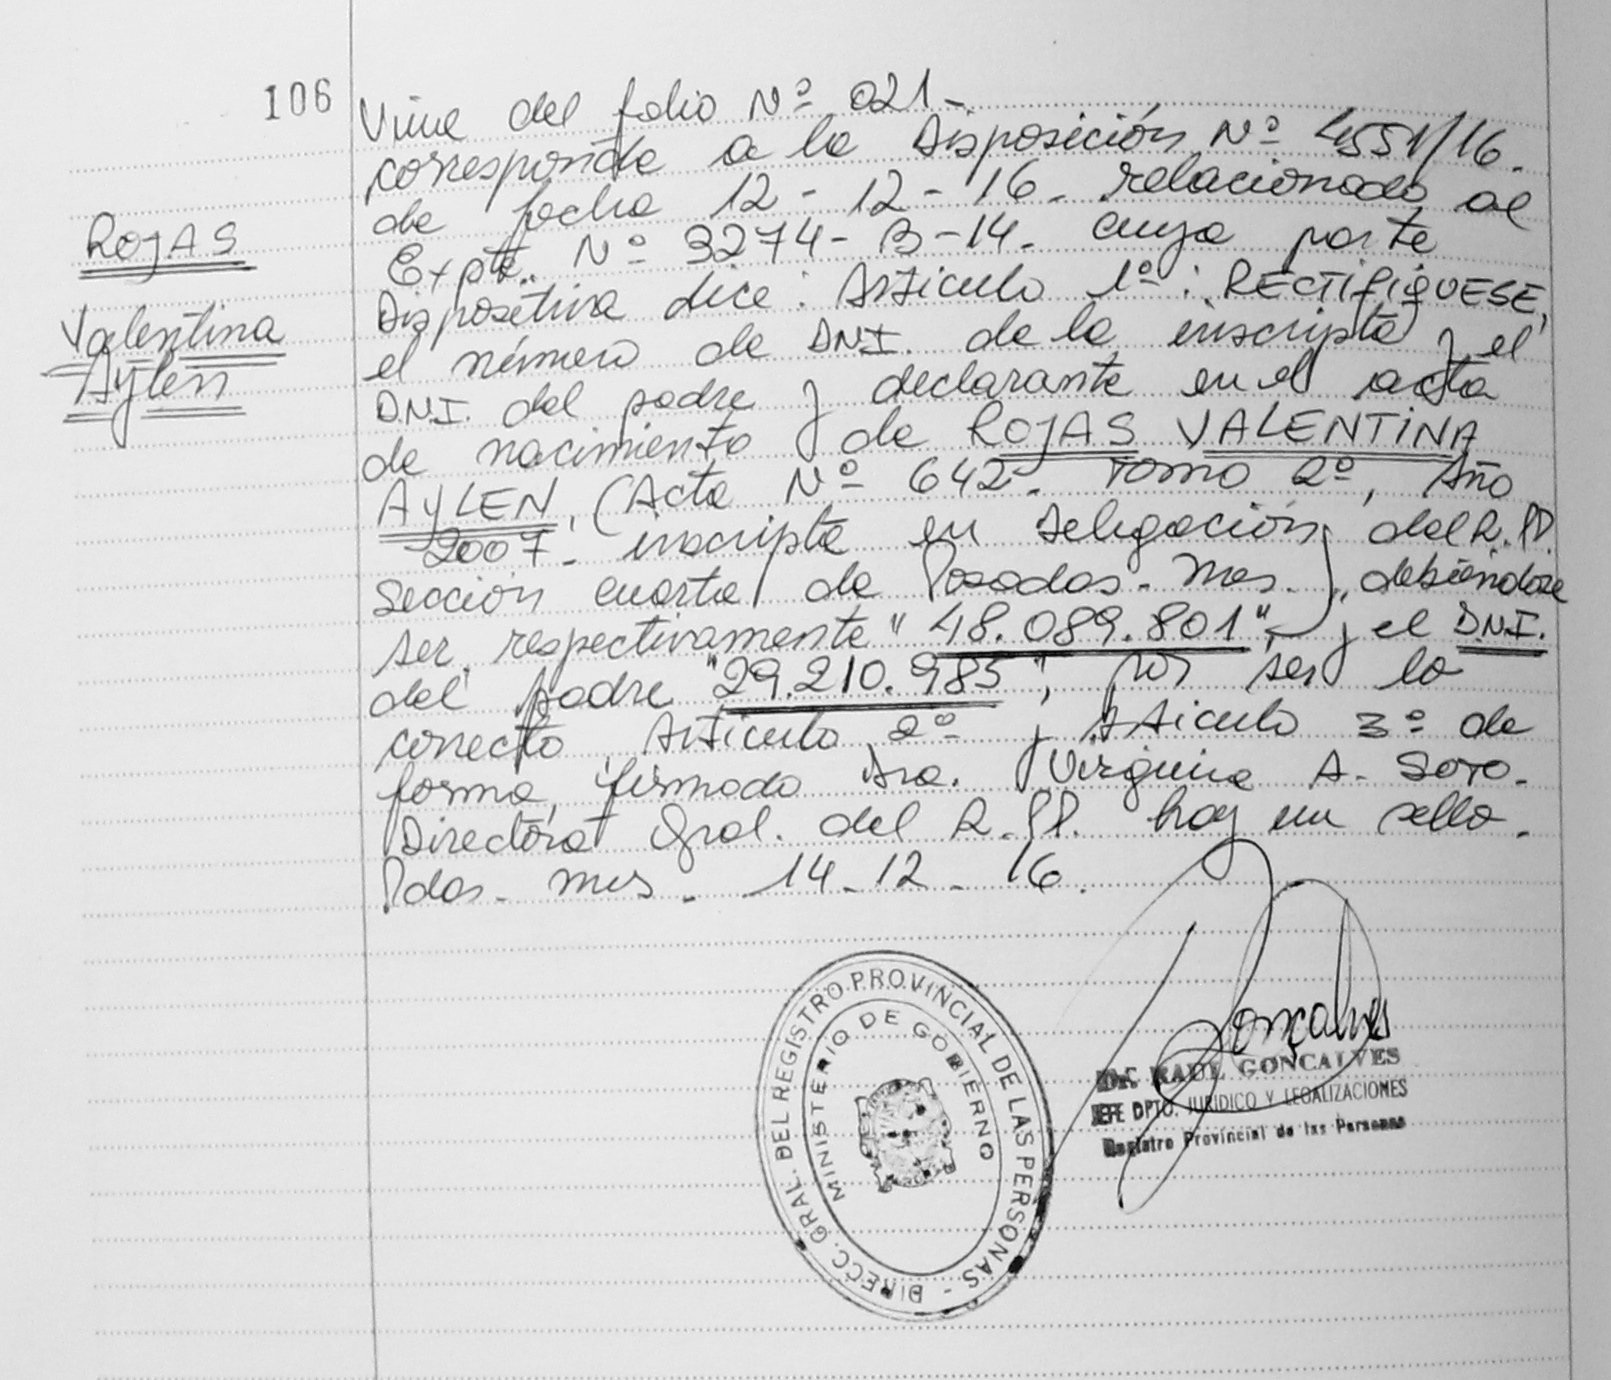 106
ROJAS
Valentina
Aylen
Viene del folio Nº 021-
corresponde a la Disposición Nº 4551/16.
de fecha 12-12-16. relacionado al
Expte. Nº 3274-B-14. cuya parte
Dispositiva dice: Articulo 1º: RECTIFIQUESE,
el número de DNI. de la inscripta y el
D.N.I. del padre y declarante en el acta
de nacimiento de ROJAS VALENTINA
AYLEN, (Acta Nº 642- Tomo 2º, Año
2007- inscripta en Delegación del R.PP.
Sección cuarta de Posadas-Mnes.), debiendose
ser, respectivamente "48.089.801", y el D.N.I.
del padre "29.210.985", por ser lo
correcto, Articulo 2º y Articulo 3º de
forma, firmado Dra. Virginia A. Soto.
Directora Gral. del R.PP. hay un sello.
Pdas- mns- 14-12-16.
DIRECC. GRAL. DEL REGISTRO PROVINCIAL DE LAS PERSONAS -
MINISTERIO DE GOBIERNO
Gonçalves
Dr. RAUL GONCALVES
JEFE DPTO. JURIDICO Y LEGALIZACIONES
Registro Provincial de las Personas